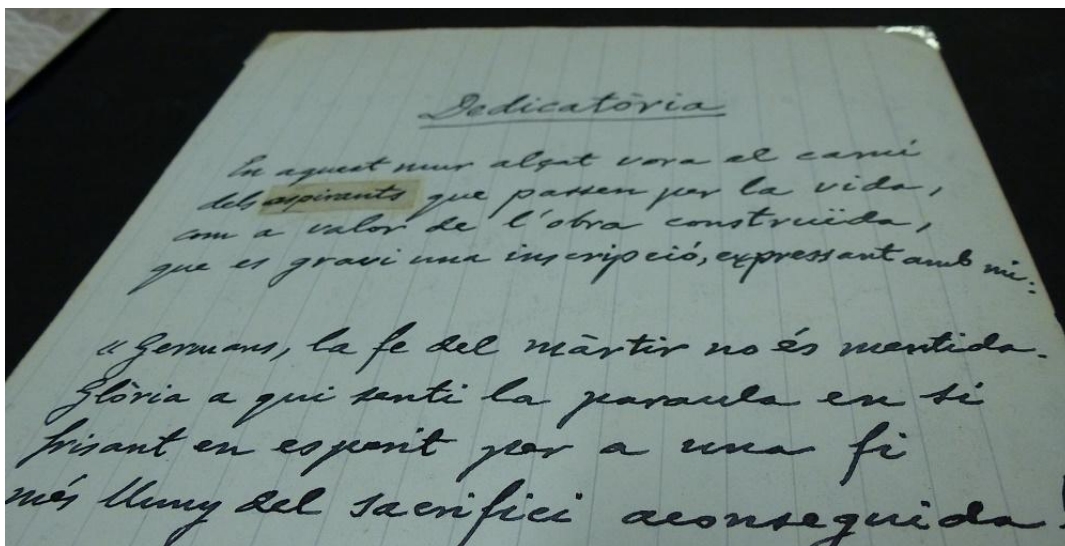 Dedicatòria
En aquest mur alçat vora el camí
dels aspirants que passen per la vida,
com a valor de l'obra construïda,
que es gravi una inscripció, expressant amb mi:
"Germans, la fe del màrtir no és mentida.
Glòria a qui senti la paraula en si
frisant en esperit per a una fi
més lluny del sacrifici aconseguida!